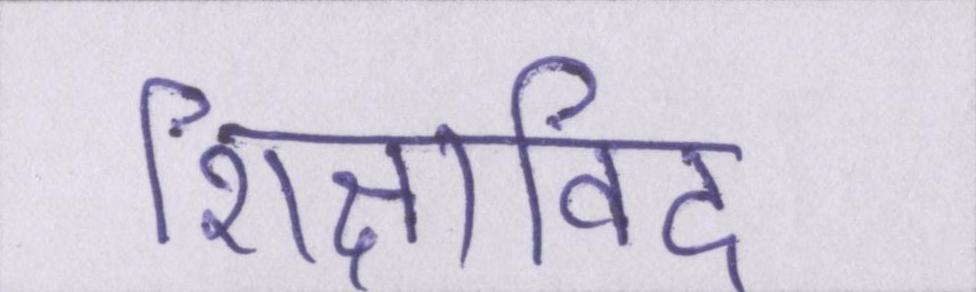 शिक्षाविद